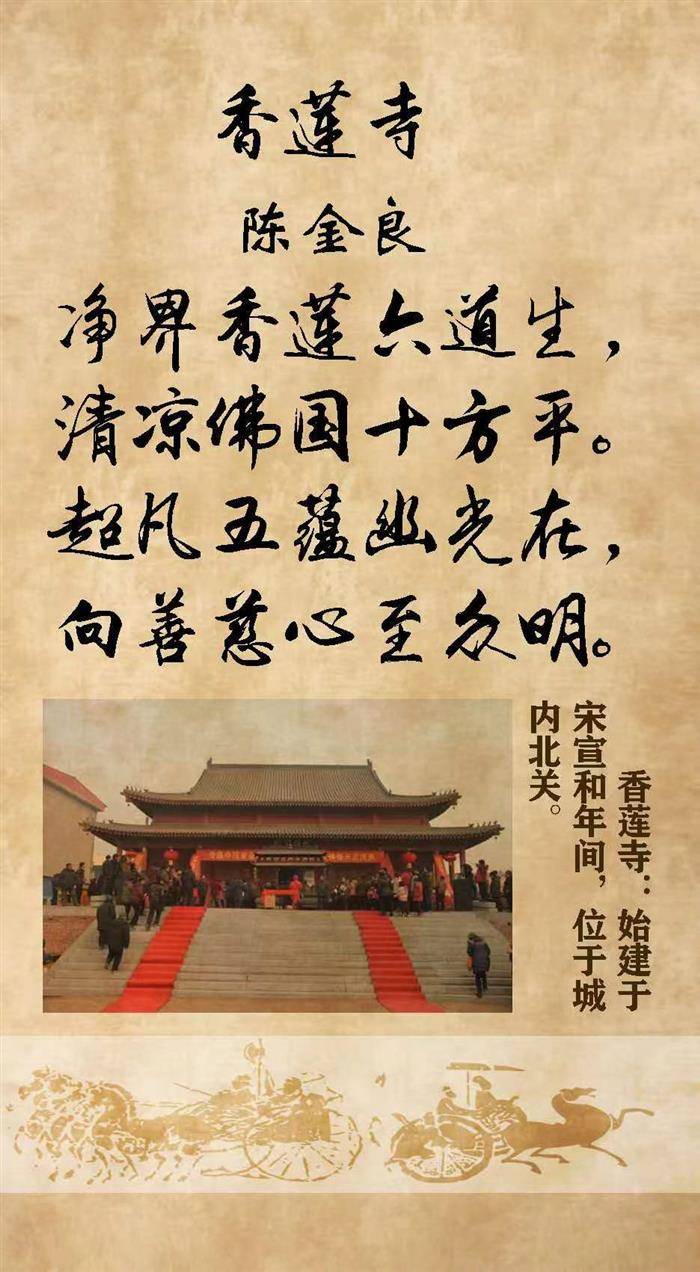 香莲寺
陈金良
净界香莲六道生，
清凉佛国十方平。
超凡五蕴幽光在，
向善慈心至众明。
香莲寺：始建于
宋宣和年间，位于城
内北关。